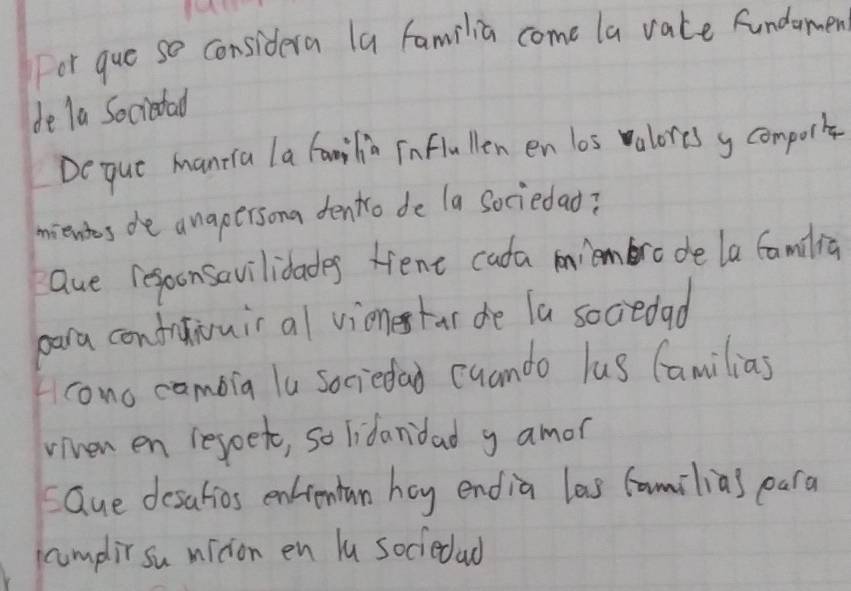 Por que se considera la familia come la vace fundamen
de la Sociedad
2 De que manria la familia influllen en los valores y comporta
mientos de anapersona dentro de la sociedad?
3 Que resoonsavilidades tiene cada miembro de la familia
para contrivuir al vienestar de la sociedad
4 como cambia la sociedad cuando las familias
viven en respeto, solidaridad y amor
5 Que desafios enfrentan hoy endia las familias para
cumplir su micion en la sociedad